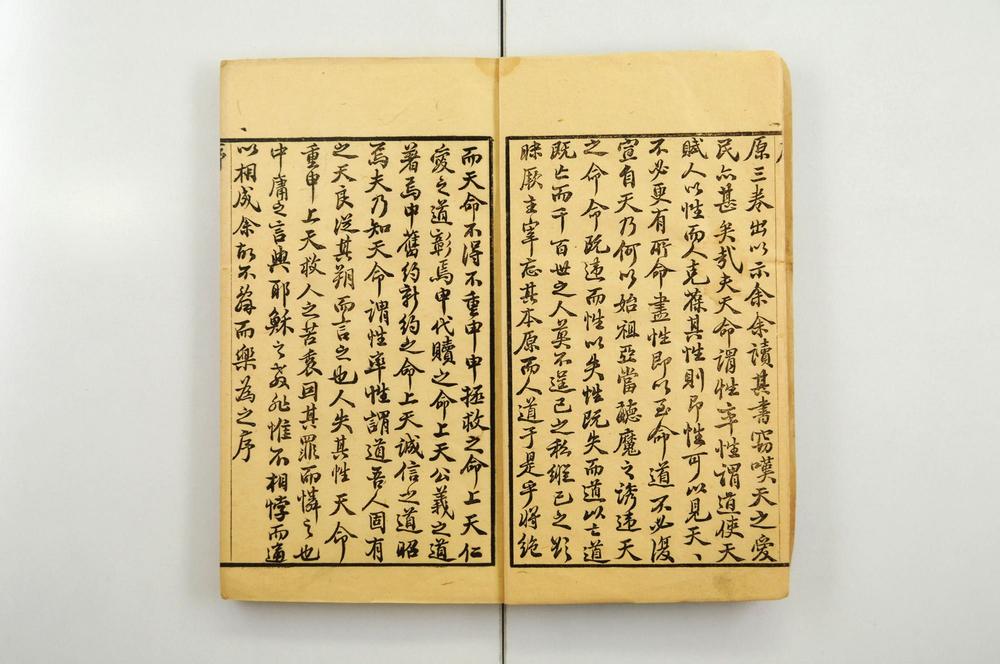 原三卷出以示余余讀其書竊嘆天之愛
民亦甚矣哉夫天命謂性率性謂道使天
賦人以性而人克葆其性則即性可以見天、
不必更有所命盡性即以至命道不必復
宣自天乃何以始祖亞當聽魔之誘違天
之命命既違而性以失性既失而道以亡道
既亡而千百世之人莫不逞己之私縱己之欲
昧厥主宰忘其本原而人道于是乎將絶
而天命不得不重申申拯救之命上天仁
愛之道彰焉申代贖之命上天公義之道
著焉申舊約新約之命上天誠信之道昭
焉夫乃知天命謂性率性謂道吾人固有
之天良從其朔而言之也人失其性天命
重申上天救人之苦衷因其罪而憐之也
中庸之言與耶穌之教非惟不相悖而適
以相成余故不辭而樂為之序